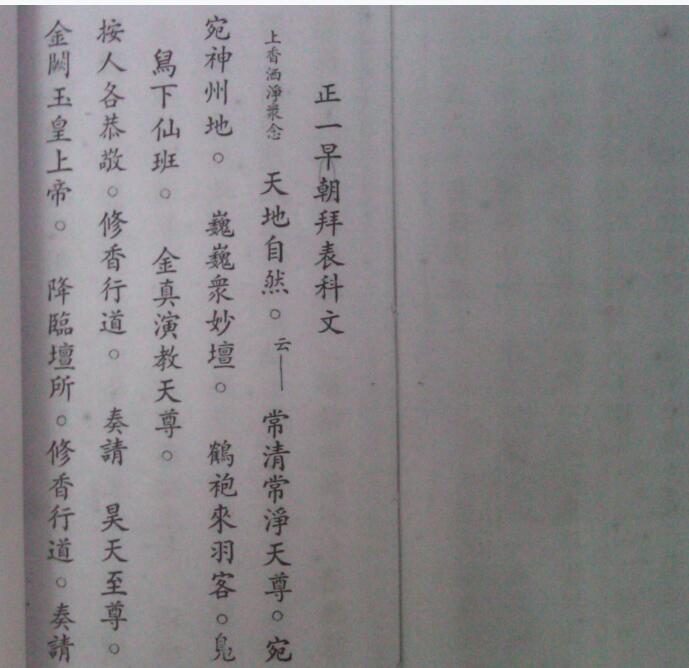 正一早朝拜表科文
上香洒淨衆念 天地自然。云— 常清常淨天尊。宛
宛神州地。 巍巍衆妙壇。 鶴袍來羽客。鳧
舃下仙班。 金真演教天尊。
按人各恭敬。修香行道。 奏請 昊天至尊。
金闕玉皇上帝。 降臨壇所。修香行道。奏請